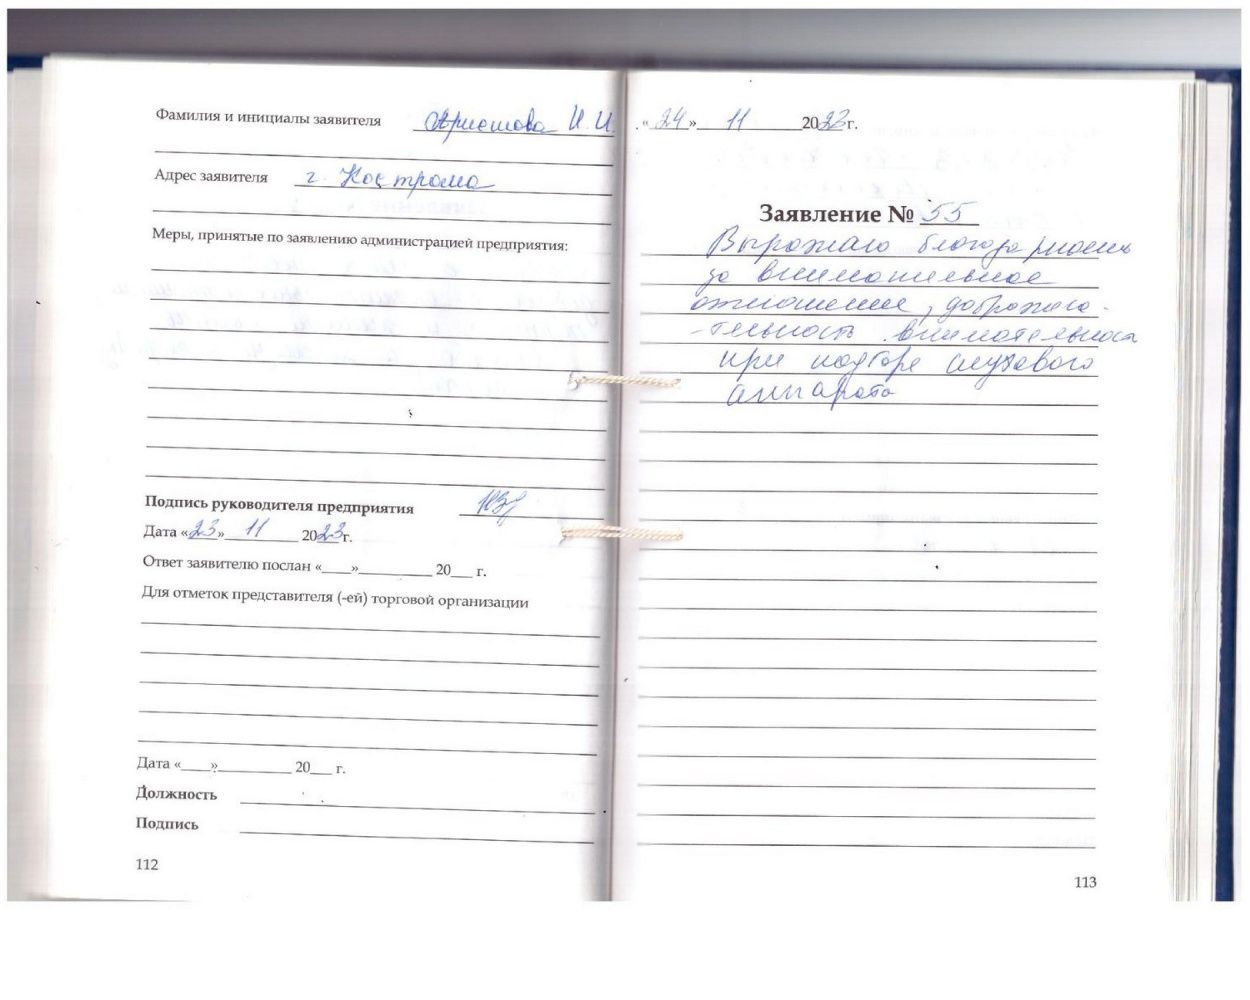 Фамилия и инициалы заявителя Аристова И.И.
Адрес заявителя г. Кострома
Меры, принятые по заявлению администрацией предприятия:
Подпись руководителя предприятия
Дата «23» 11 2023г.
Ответ заявителю послан «___»_________ 20___ г.
Для отметок представителя (-ей) торговой организации
Дата «___»_________ 20___ г.
Должность
Подпись
112
«24» 11 2023г.
Заявление № 55
Выражаю благодарность
за внимательное
отношение, доброжела-
-тельность внимательност
при подборе слухового
аппарата
113